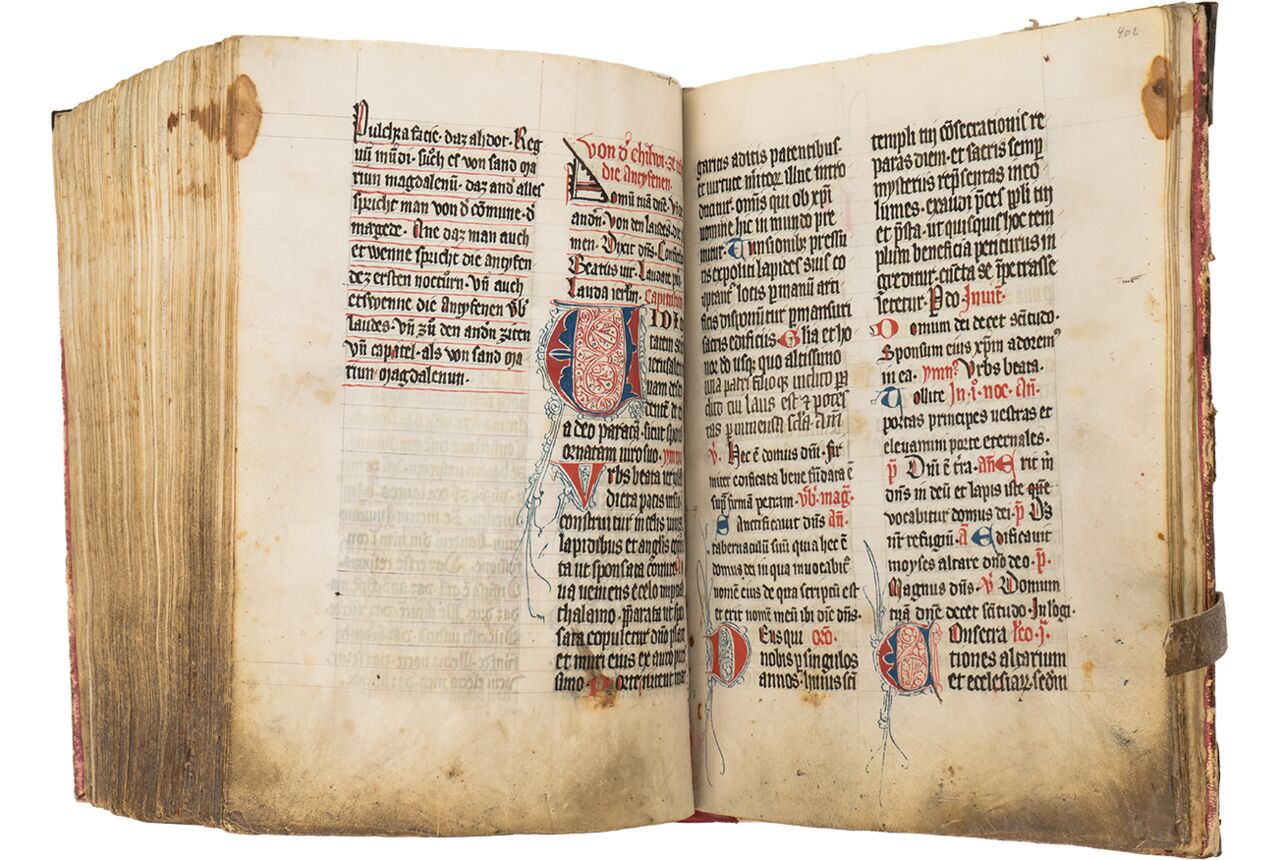 Pulchra facie · daz ah dor · Reg
uū mūdi · sůch es von sand ma
riun magdalenū · daz and alles
spricht man von d̄ cōmune · d̄
magede · Ane daz man auch
et wenne spricht die antyfen
dez ersten nocturn · vn̄ auch
etswenne die Antyfen vb̄
laudes · Vn̄ zů den andn̄ ziten
vn̄ capitel · als von sand ma
riun magdalenun ·
Von d̓ chilwi · ze
die antyfenen ·
Domū tuā dn̄e · Vn̄
andn̄ · von den laudes · die
men · Dixit dn̄s · Confite
Beatus uir · Laudate pu
Lauda ierlm̄ · Capitulū
VIDI
tatem sc̄
ierusale
uam desce
dentē de ce
a deo paratā · sicut spon
ornatam uiro suo · ymn
Vrbs beata ierusl
dicta pacis uisi
construitur in celis uiuis
lapidibus et anglis
ta ut sponsata comite
ua ueniens e celo nup
thalamo · p̄parata ut spo
sata copuletur dn̄o
et muri eius ex auro puris
simo · Porte nitent mar
garitis aditis patentibus ·
et uirtute mitor̄ illuc intro
ducitur · omīs qui ob xp̄i
nomine hic in mundo pre
mitur · Tunsionibꝰ pressu
ris expoliti lapides suis co
aptant̄ locis p manū arti
ficis disponūtur p mansuri
sacris edificiis · Gl̄ia et ho
nor do usq̄ quo altissimo
una patri filioq̄ inclito pa
clito cui laus est ⁊ potes
tas p inmensa scl̄a · Am̄
V̄ · Hec ē domus dn̄i · fir
miter edificata bene fundata ē
sup firmā petram · vb̄ · maḡ ·
Sanctificauit dn̄s · an̄ ·
tabernaculū suū quia hec ē
domus dei in qua inuocabit̄
nomē eius de qua scriptū est
et erit nomē meū ibi dic̄ dn̄s ·
Deus qui · orō ·
nobis p singulos
annos · huius sc̄i
402
templi tui cōsecrationis re
paras diem · et sacris semp̄
mysteriis rep̄sentas inco
lumes · exaudi p̄ces ppl̄i tui
et p̄sta · ut quisquis hoc tem
plum beneficia petiturus in
greditur · cūcta se īpetrasse
letetur · P do · Inuit̄ ·
Domum dei decet sc̄itudo ·
Sponsum eius xp̄m adorem̄
in ea · ymn̄ · Vrbs beata ·
Tollite · In · i · noc · an̄ ·
portas principes uestras et
eleuamini porte eternales ·
p̄ · Dn̄i ē t̄ra · an̄ Erit m̄
dn̄s in deū et lapis iste
vocabitur domus dei · p̄ · Ds̄
nr̄ refugiū · a · Edificauit
moyses altare dn̄o deo · p̄ ·
Magnus dn̄s · V̄ Domum
tuā dn̄e decet sc̄itudo · In lōgi ·
Consecra · lc̄o · j ·
tiones altarium
et ecclesiaꝝ · sedm̄